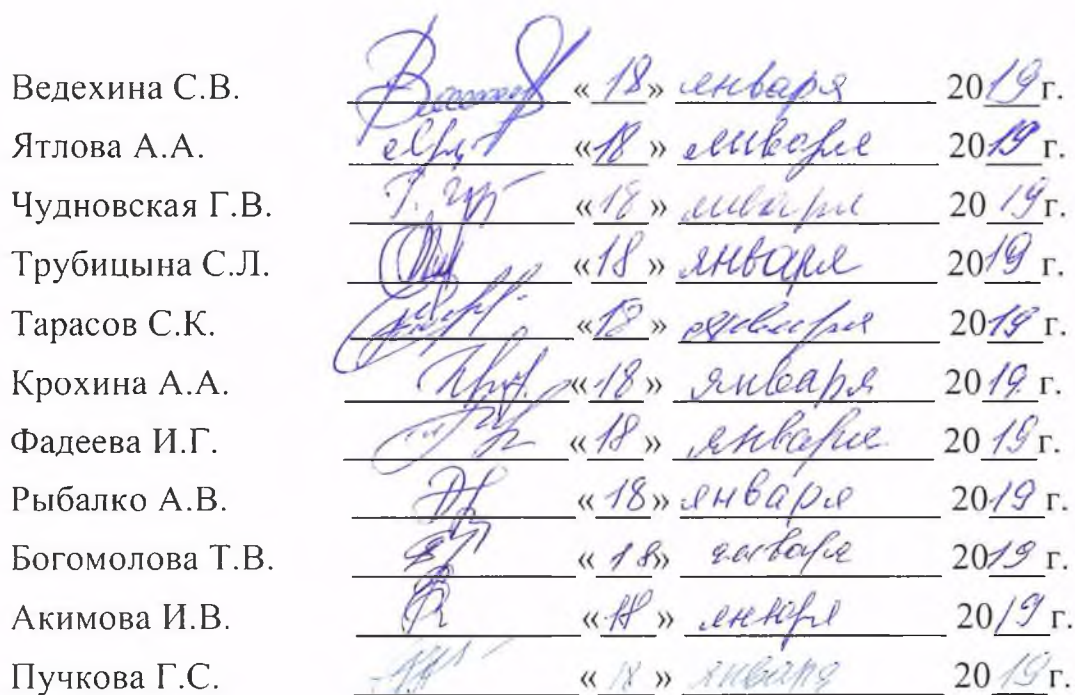 Ведехина С.В. «18» января 2019г.
Ятлова А.А. «18» января 2019г.
Чудновская Г.В. «18» января 2019г.
Трубицына С.Л. «18» января 2019 г.
Тарасов С.К. «18» января 2019 г.
Крохина А.А. «18» января 2019 г.
Фадеева И.Г. «18» января 2019г.
Рыбалко А.В. «18» января 2019 г.
Богомолова Т.В. «18» января 2019 г.
Акимова И.В. «18» января 2019 г.
Пучкова Г.С. «18» января 2019г.